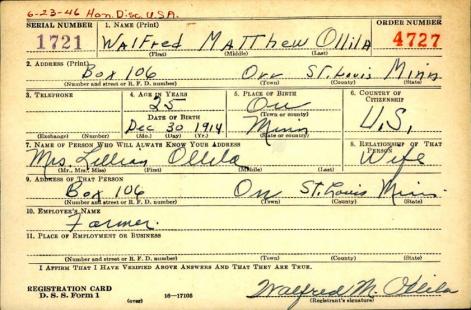 6-23-46 Hon. Disc. U.S.A.
SERIAL NUMBER 1. NAME (Print) ORDER NUMBER
1721 Walfred Matthew Ollila 4727
(First) (Middle) (Last)
2. ADDRESS (Print)
Box 106 Orr St. Louis Minn
(Number and street or R. F. D. number) (Town) (County) (State)
3. TELEPHONE 4. AGE IN YEARS 5. PLACE OF BIRTH 6. COUNTRY OF CITIZENSHIP
25 Orr
DATE OF BIRTH (Town or county)
Dec 30 1914 Minn U.S.
(Exchange) (Number) (Mo.) (Day) (Yr.) (State or country)
7. NAME OF PERSON WHO WILL ALWAYS KNOW YOUR ADDRESS 8. RELATIONSHIP OF THAT PERSON
Mrs. Lillian Ollila Wife
(Mr., Mrs., Miss) (First) (Middle) (Last)
9. ADDRESS OF THAT PERSON
Box 106 Orr St. Louis Minn.
(Number and street or R. F. D. number) (Town) (County) (State)
10. EMPLOYER'S NAME
Farmer.
11. PLACE OF EMPLOYMENT OR BUSINESS
(Number and street or R. F. D. number) (Town) (County) (State)
I AFFIRM THAT I HAVE VERIFIED ABOVE ANSWERS AND THAT THEY ARE TRUE.
REGISTRATION CARD
D. S. S. Form 1 (over) 16—17105 Walfred M. Ollila
(Registrant's signature)